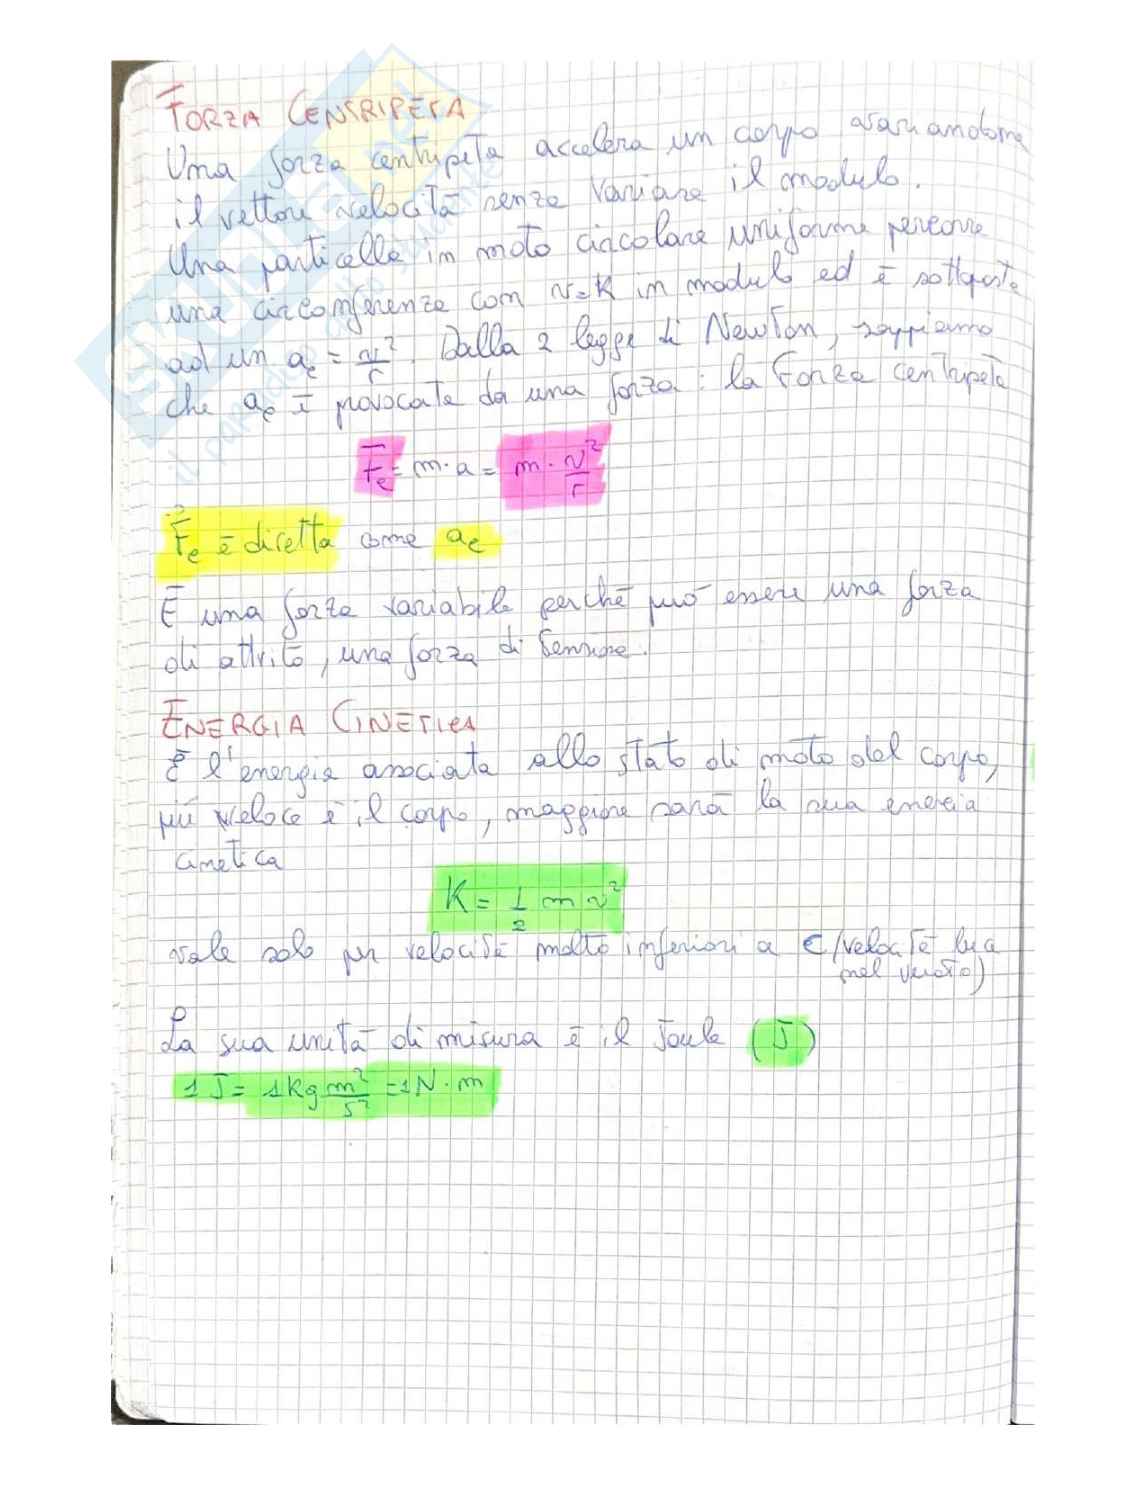 FORZA CENTRIPETA
Una forza centripeta accelera un corpo variandone
il vettore velocità senza variare il modulo.
Una particella in moto circolare uniforme percorre
una circonferenza con v=K in modulo ed è sottoposta
ad un ac = v²/r. Dalla 2 legge di Newton, sappiamo
che ac è provocata da una forza: la Forza centripeta
Fc = m·a = m·v²/r
Fc è diretta come ac
È una forza variabile perché può essere una forza
di attrito, una forza di tensione.
ENERGIA CINETICA
È l'energia associata allo stato di moto del corpo,
più veloce è il corpo, maggiore sarà la sua energia
cinetica
K = 1/2 m v²
vale solo per velocità molto inferiori a c (velocità luce
nel vuoto)
La sua unità di misura è il Joule (J)
1 J = 1Kg m²/s² = 1N·m